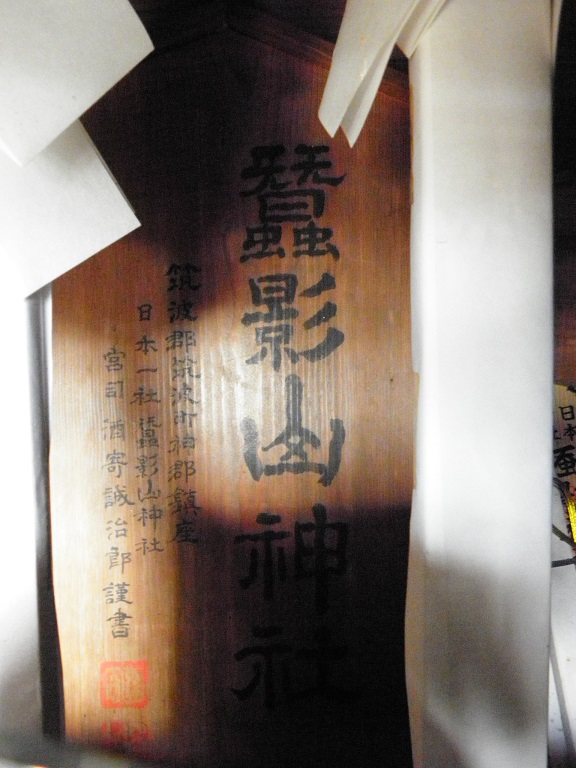 蠶影山神社
筑波郡筑波町神郡鎮座
日本一社蠶影山神社
宮司 酒寄誠治郎謹書
日本